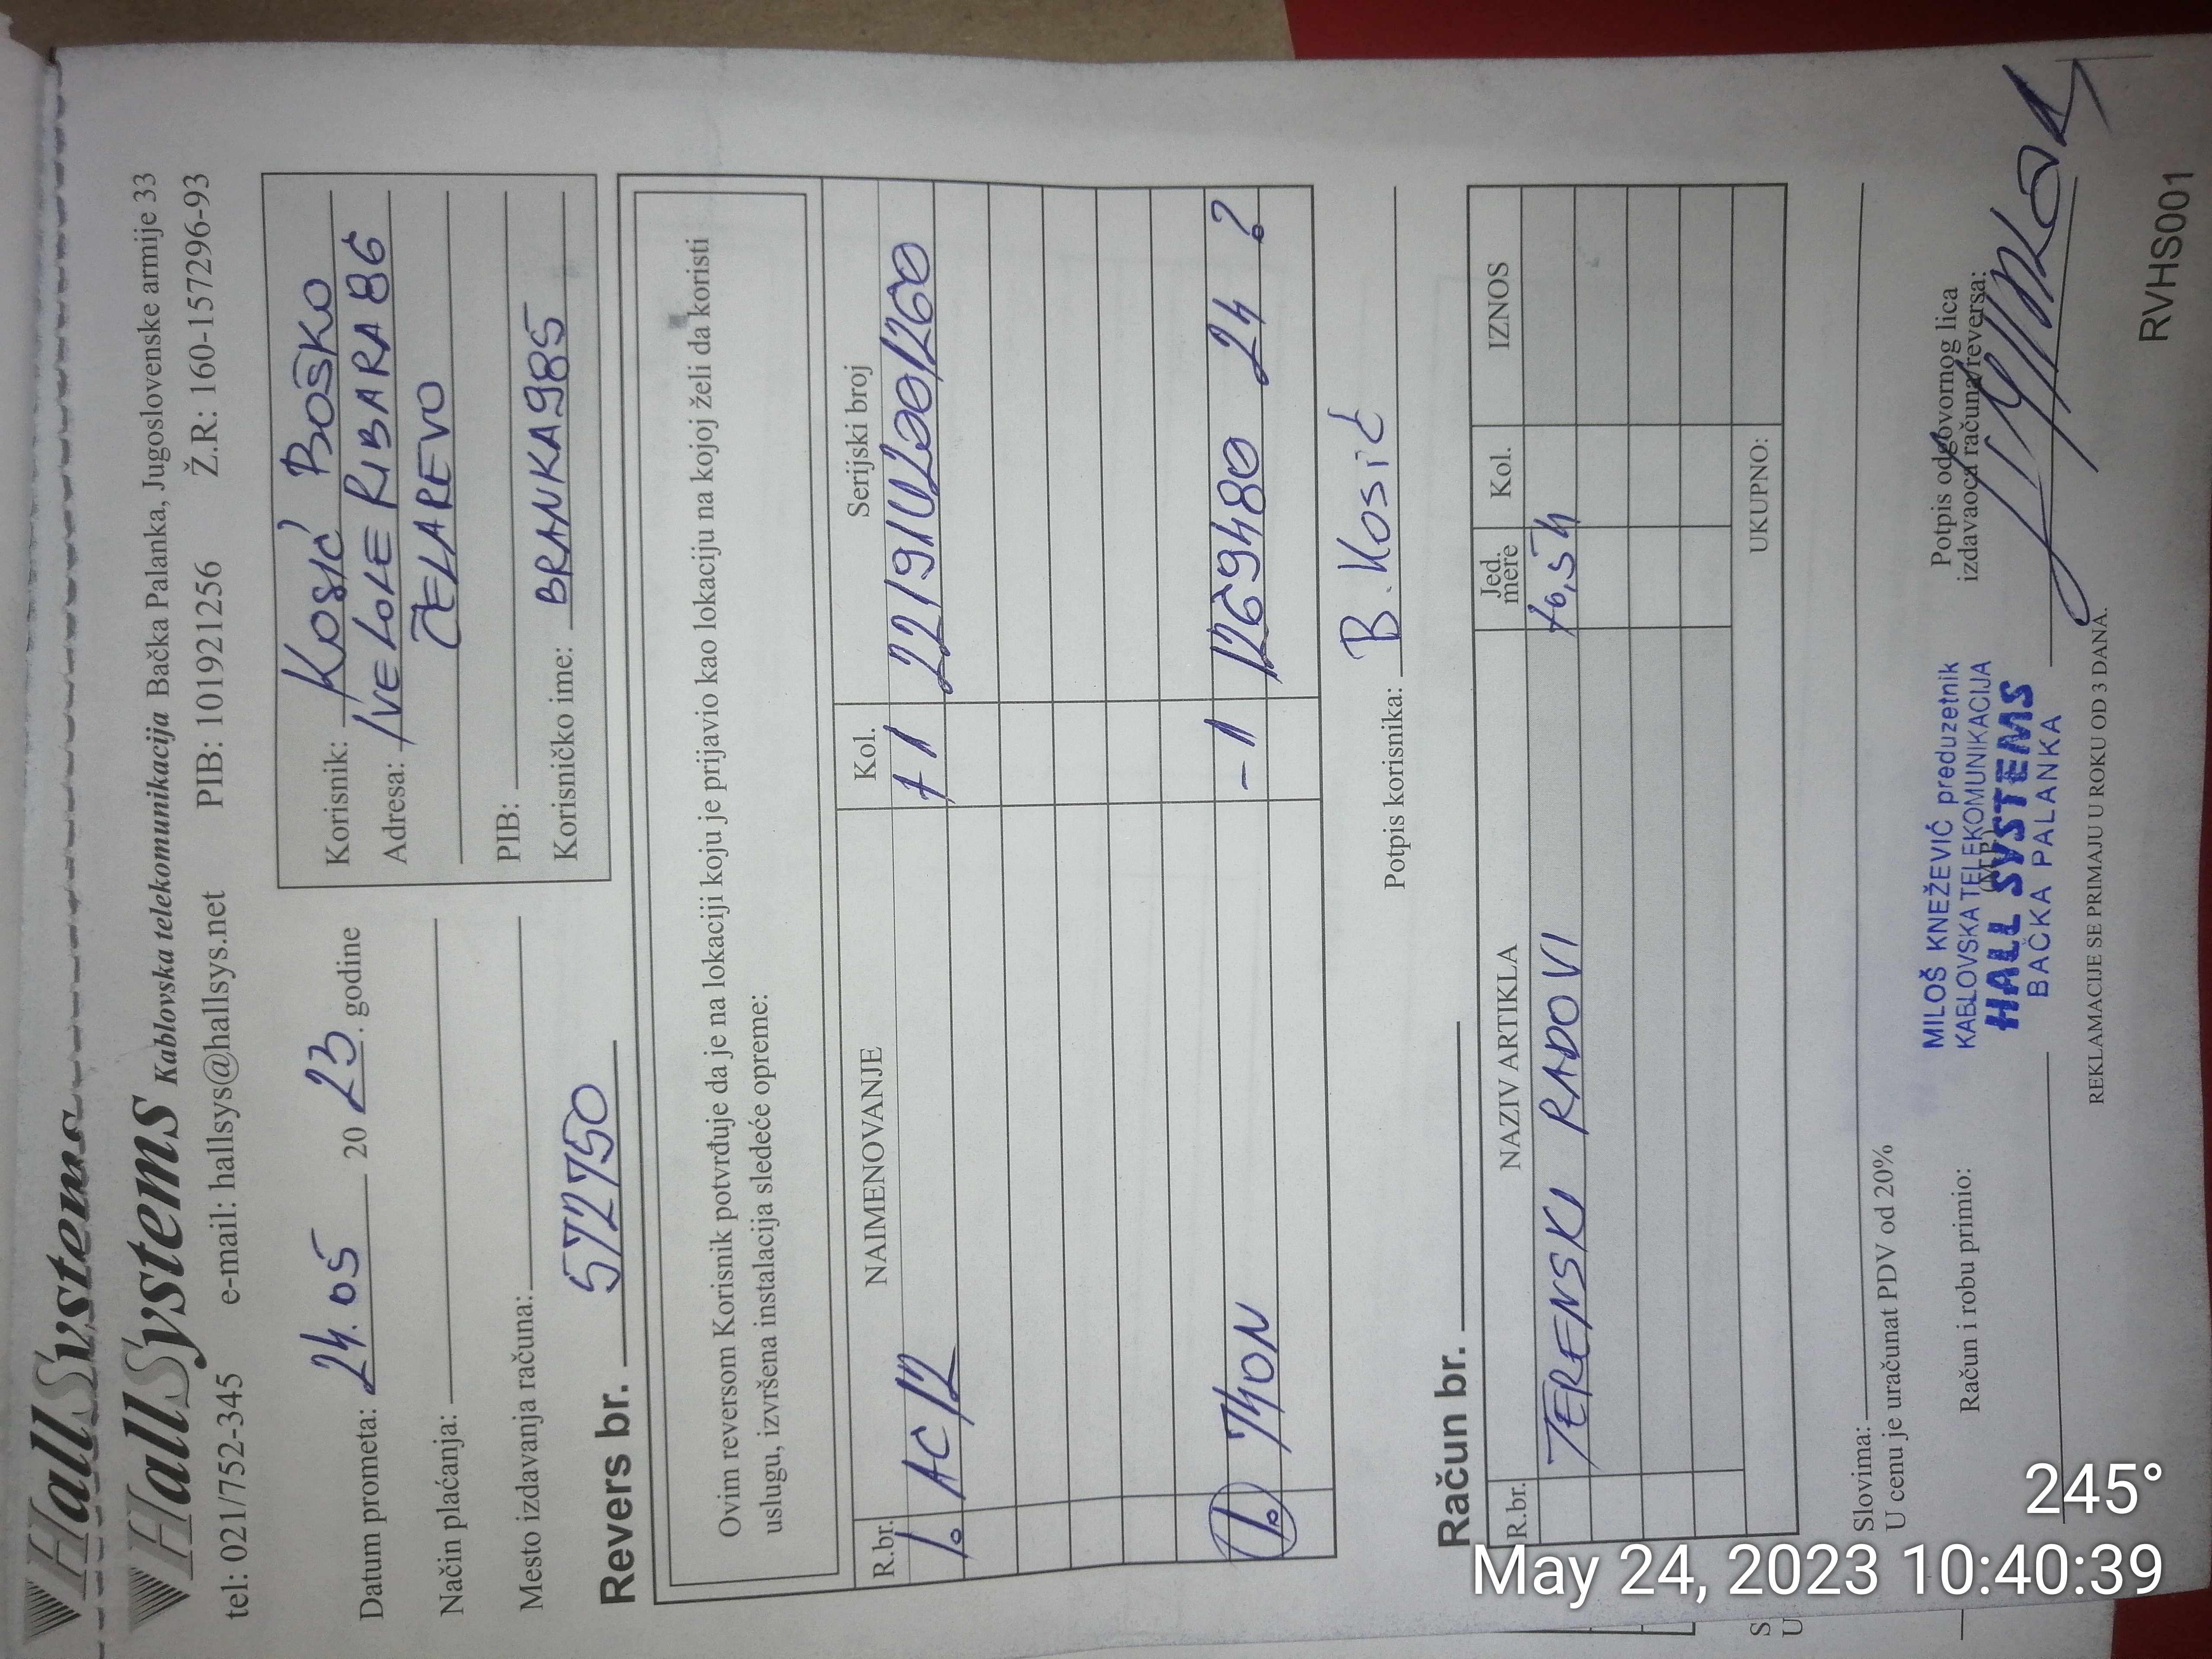 HallSystems
HallSystems Kablovska telekomunikacija Bačka Palanka, Jugoslovenske armije 33
tel: 021/752-345 e-mail: hallsys@hallsys.net PIB: 101921256 Ž.R.: 160-157296-93
Datum prometa: 24.05 20 23. godine
Način plaćanja:
Mesto izdavanja računa:
Korisnik: Kosić Boško
Adresa: IVE LOLE RIBARA 86
ČELAREVO
PIB:
Korisničko ime: BRANKA985
Revers br. 572750
Ovim reversom Korisnik potvrđuje da je na lokaciji koju je prijavio kao lokaciju na kojoj želi da koristi
uslugu, izvršena instalacija sledeće opreme:
R.br. NAIMENOVANJE Kol. Serijski broj
1. AC12 +1
1. 740N -1 1269480 24 ?
Potpis korisnika: B. Kosić
Račun br.
R.br. NAZIV ARTIKLA Jed. mere Kol. IZNOS
TERENSKI RADOVI
UKUPNO:
Slovima:
U cenu je uračunat PDV od 20%
Račun i robu primio:
MILOŠ KNEŽEVIĆ preduzetnik
KABLOVSKA TELEKOMUNIKACIJA
HALL SYSTEMS
BAČKA PALANKA
Potpis odgovornog lica
izdavaoca računa/reversa:
REKLAMACIJE SE PRIMAJU U ROKU OD 3 DANA.
RVHS001
S
U
245°
May 24, 2023 10:40:39